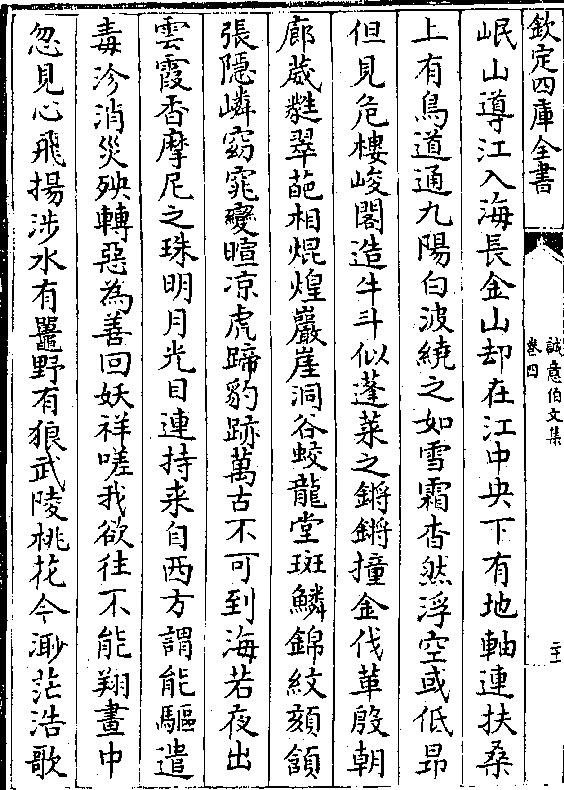 欽定四庫全書
誠意伯文集
卷四
二十
岷山導江入海長金山却在江中央下有地軸連扶桑
上有鳥道通九陽白波繞之如雪霜杳然浮空或低昂
但見危樓峻閣造牛斗似蓬萊之鏘鏘撞金伐革殷朝
廊葳蕤翠葩相焜煌巖崖洞谷蛟龍堂斑鱗錦紋頦頷
張隱嶙窈窕變暄凉虎蹄豹跡萬古不可到海若夜出
雲霞香摩尼之珠明月光目連持来自西方謂能驅遣
毒沴消災殃轉惡為善回妖祥嗟我欲往不能翔畫中
忽見心飛揚涉水有鼉野有狼武陵桃花今渺茫浩歌